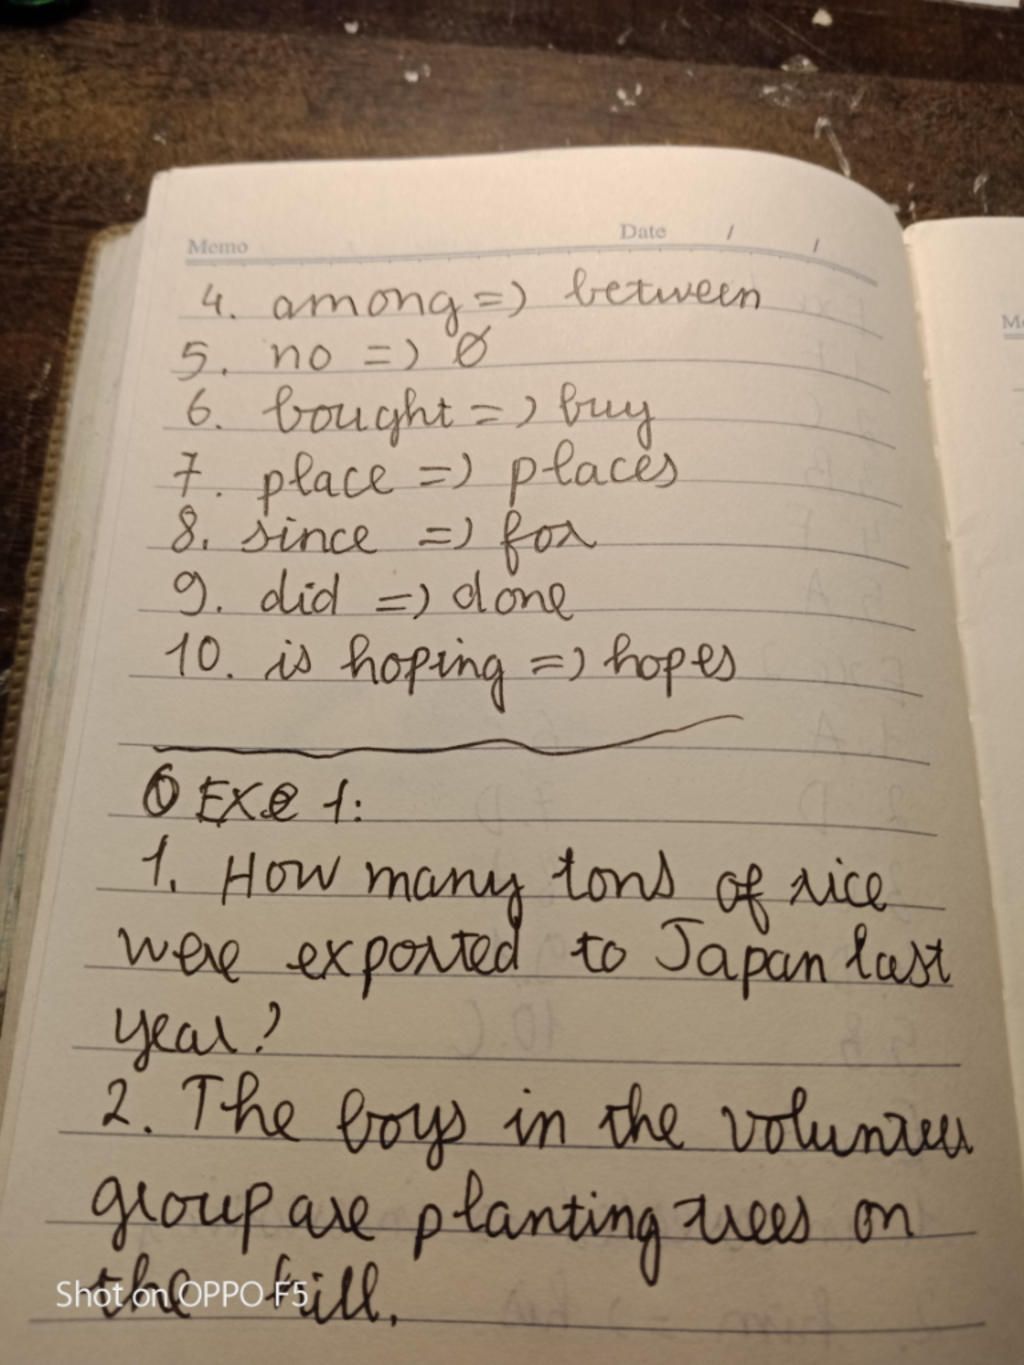 Memo Date / /
4. among => between
5. no => Ø
6. bought => buy
7. place => places
8. since => for
9. did => done
10. is hoping => hopes
EXE 1:
1. How many tons of rice
were exported to Japan last
year?
2. The boys in the volunteer
group are planting trees on
the hill.
Shot on OPPO F5